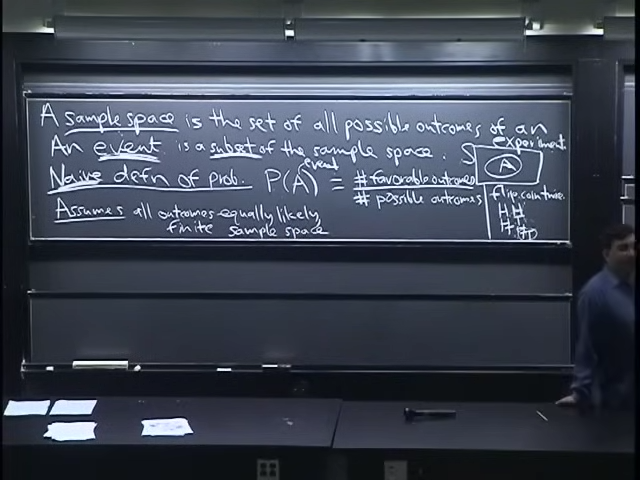 A sample space is the set of all possible outcomes of an experiment.
An event is a subset of the sample space.
S
A
Naive defn of prob. P(A) = # favorable outcomes
event
# possible outcomes
Assumes all outcomes equally likely,
finite sample space
flip coin twice
HH